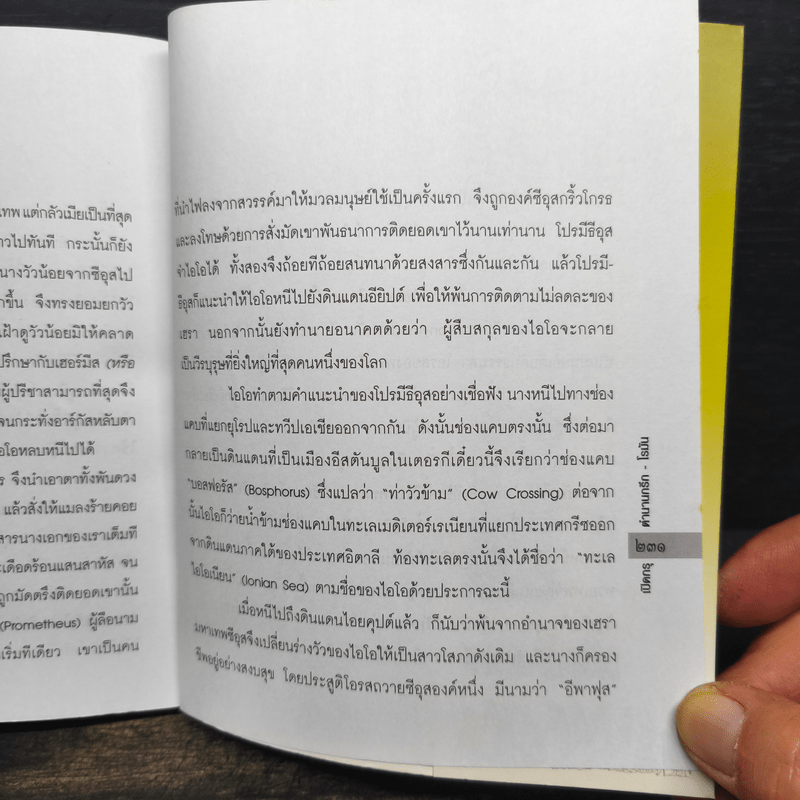 เทพ แต่กลัวเมียเป็นที่สุด
วไปทันที กระนั้นก็ยัง
นางวัวน้อยจากซีอุสไป
กขึ้น จึงทรงยอมยกวัว
เฝ้าดูวัวน้อยมิให้คลาด
ปรึกษากับเฮอร์มีส (หรือ
ผู้ปรีชาสามารถที่สุดจึง
จนกระทั่งอาร์กัสหลับตา
อโอหลบหนีไปได้
ร จึงนำเอาตาทั้งพันดวง
แล้วสั่งให้แมลงร้ายคอย
สารนางเอกของเราเต็มที
ะเดือดร้อนแสนสาหัส จน
ถูกมัดตรึงติดยอดเขานั้น
(Prometheus) ผู้ลือนาม
เริ่มทีเดียว เขาเป็นคน
ที่นำไฟลงจากสวรรค์มาให้มวลมนุษย์ใช้เป็นครั้งแรก จึงถูกองค์ซีอุสกริ้วโกรธ
และลงโทษด้วยการสั่งมัดเขาพันธนาการติดยอดเขาไว้นานเท่านาน โปรมีธีอุส
จำไอโอได้ ทั้งสองจึงถ้อยทีถ้อยสนทนาด้วยสงสารซึ่งกันและกัน แล้วโปรมี-
ธีอุสก็แนะนำให้ไอโอหนีไปยังดินแดนอียิปต์ เพื่อให้พ้นการติดตามไม่ลดละของ
เฮรา นอกจากนั้นยังทำนายอนาคตด้วยว่า ผู้สืบสกุลของไอโอจะกลาย
เป็นวีรบุรุษที่ยิ่งใหญ่ที่สุดคนหนึ่งของโลก
ไอโอทำตามคำแนะนำของโปรมีธีอุสอย่างเชื่อฟัง นางหนีไปทางช่อง
แคบที่แยกยุโรปและทวีปเอเชียออกจากกัน ดังนั้นช่องแคบตรงนั้น ซึ่งต่อมา
กลายเป็นดินแดนที่เป็นเมืองอีสตันบูลในเตอรกีเดี๋ยวนี้จึงเรียกว่าช่องแคบ
"บอสฟอรัส" (Bosphorus) ซึ่งแปลว่า "ท่าวัวข้าม" (Cow Crossing) ต่อจาก
นั้นไอโอก็ว่ายน้ำข้ามช่องแคบในทะเลเมดิเตอร์เรเนียนที่แยกประเทศกรีซออก
จากดินแดนภาคใต้ของประเทศอิตาลี ท้องทะเลตรงนั้นจึงได้ชื่อว่า "ทะเล
ไอโอเนียน" (Ionian Sea) ตามชื่อของไอโอด้วยประการฉะนี้
เมื่อหนีไปถึงดินแดนไอยคุปต์แล้ว ก็นับว่าพ้นจากอำนาจของเฮรา
มหาเทพซีอุสจึงเปลี่ยนร่างวัวของไอโอให้เป็นสาวโสภาดังเดิม และนางก็ครอง
ชีพอยู่อย่างสงบสุข โดยประสูติโอรสถวายซีอุสองค์หนึ่ง มีนามว่า "อีพาฟุส"
ตำนานกรีก - โรมัน
๒๓๑
เปิดกรุ